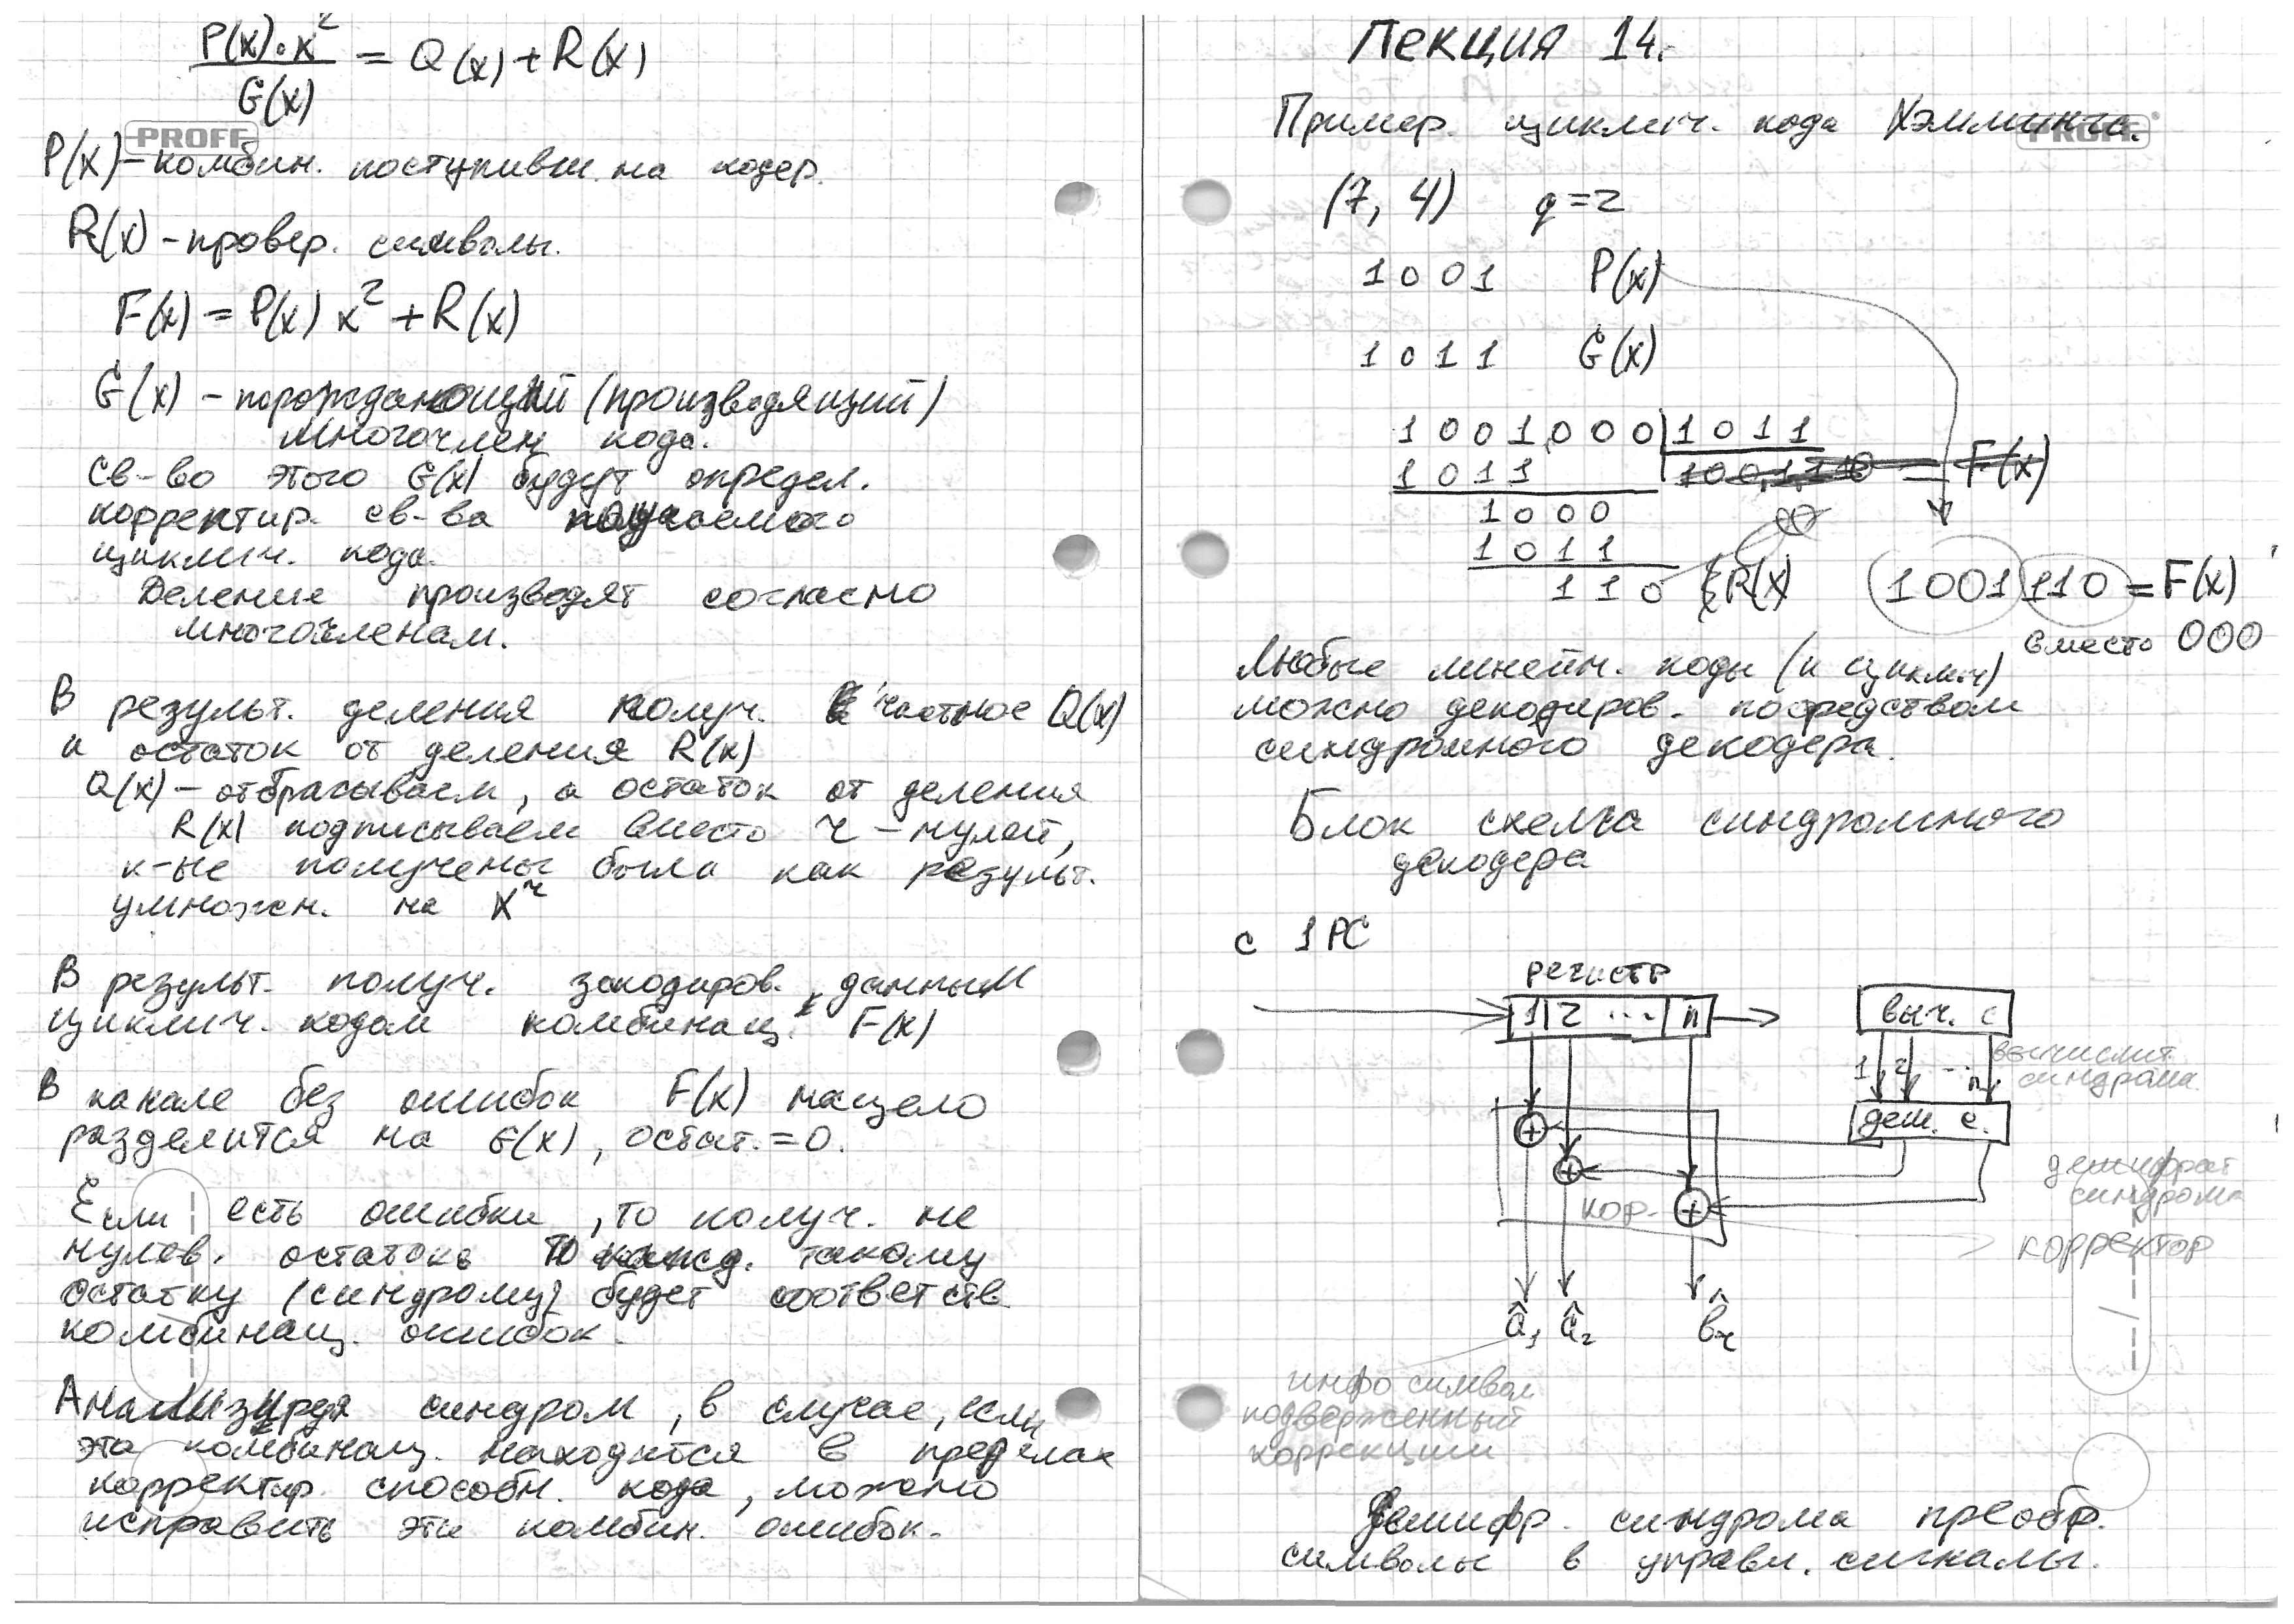 P(x)·x² / G(x) = Q(x) + R(x)
PROFF
P(x) – комбин. поступивш. на кодер.
R(x) – провер. символы.
F(x) = P(x) x² + R(x)
G(x) – порождающий (производящий)
многочлен кода.
Св-во этого G(x) будут определ.
корректир. св-ва
циклич. кода.
Деление производят согласно
многочленам.
В результ. деления получ. частное Q(x)
и остаток от деления R(x)
Q(x) – отбрасываем, а остаток от деления
R(x) подписываем вместо r – нулей,
к-ые получены были как результ.
умножен. на x^r
В результ. получ. закодиров. данным
циклич. кодом комбинац. F(x)
В канале без ошибок F(x) нацело
разделится на G(x), остат. = 0.
Если есть ошибки, то получ. не
нулев. остаток то кажд. такому
остатку (синдрому) будет соответств.
комбинац. ошибок.
Анализируя синдром, в случае, если
эта комбинац. находится в пределах
корректир. способн. кода, можно
исправить эти комбин. ошибок.
Лекция 14.
Пример. циклич. кода Хэмминга.
PROFF
(7, 4) q=2
1001 P(x)
1011 G(x)
1001000 | 1011
1011 = F(x)
1000
1011
110 R(x) 1001110 = F(x)
вместо 000
Любые линейн. коды (и циклич)
можно декодиров. посредством
синдромного декодера.
Блок схема синдромного
декодера
с 1 РС
регистр
1 2 ... n выч. с
1 2 ... n вычислит.
синдрома
деш. с.
дешифрат
синдрома
кор.
корректор
â₁ â₂ b̂r
инфо символ
подверженный
коррекции
Дешифр. синдрома преобр.
символы в управл. сигналы.